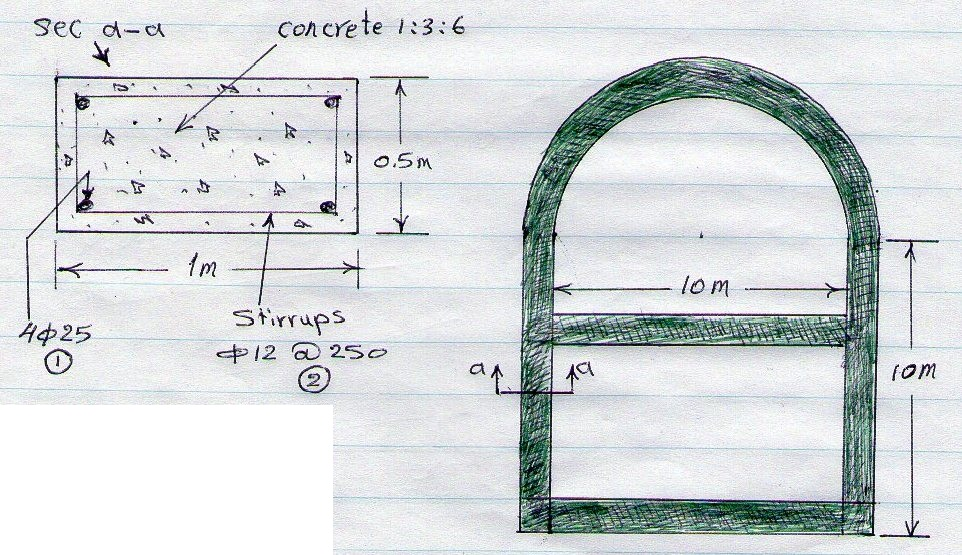 sec a-a
concrete 1:3:6
0.5m
1m
4φ25
①
Stirrups
φ12 @ 250
②
10m
a a
10m